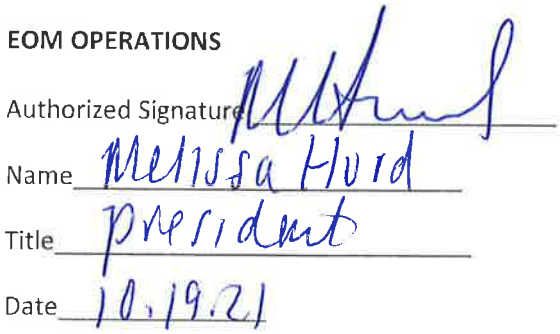 EOM OPERATIONS
Authorized Signature
Name Melissa Hurd
Title president
Date 10.19.21